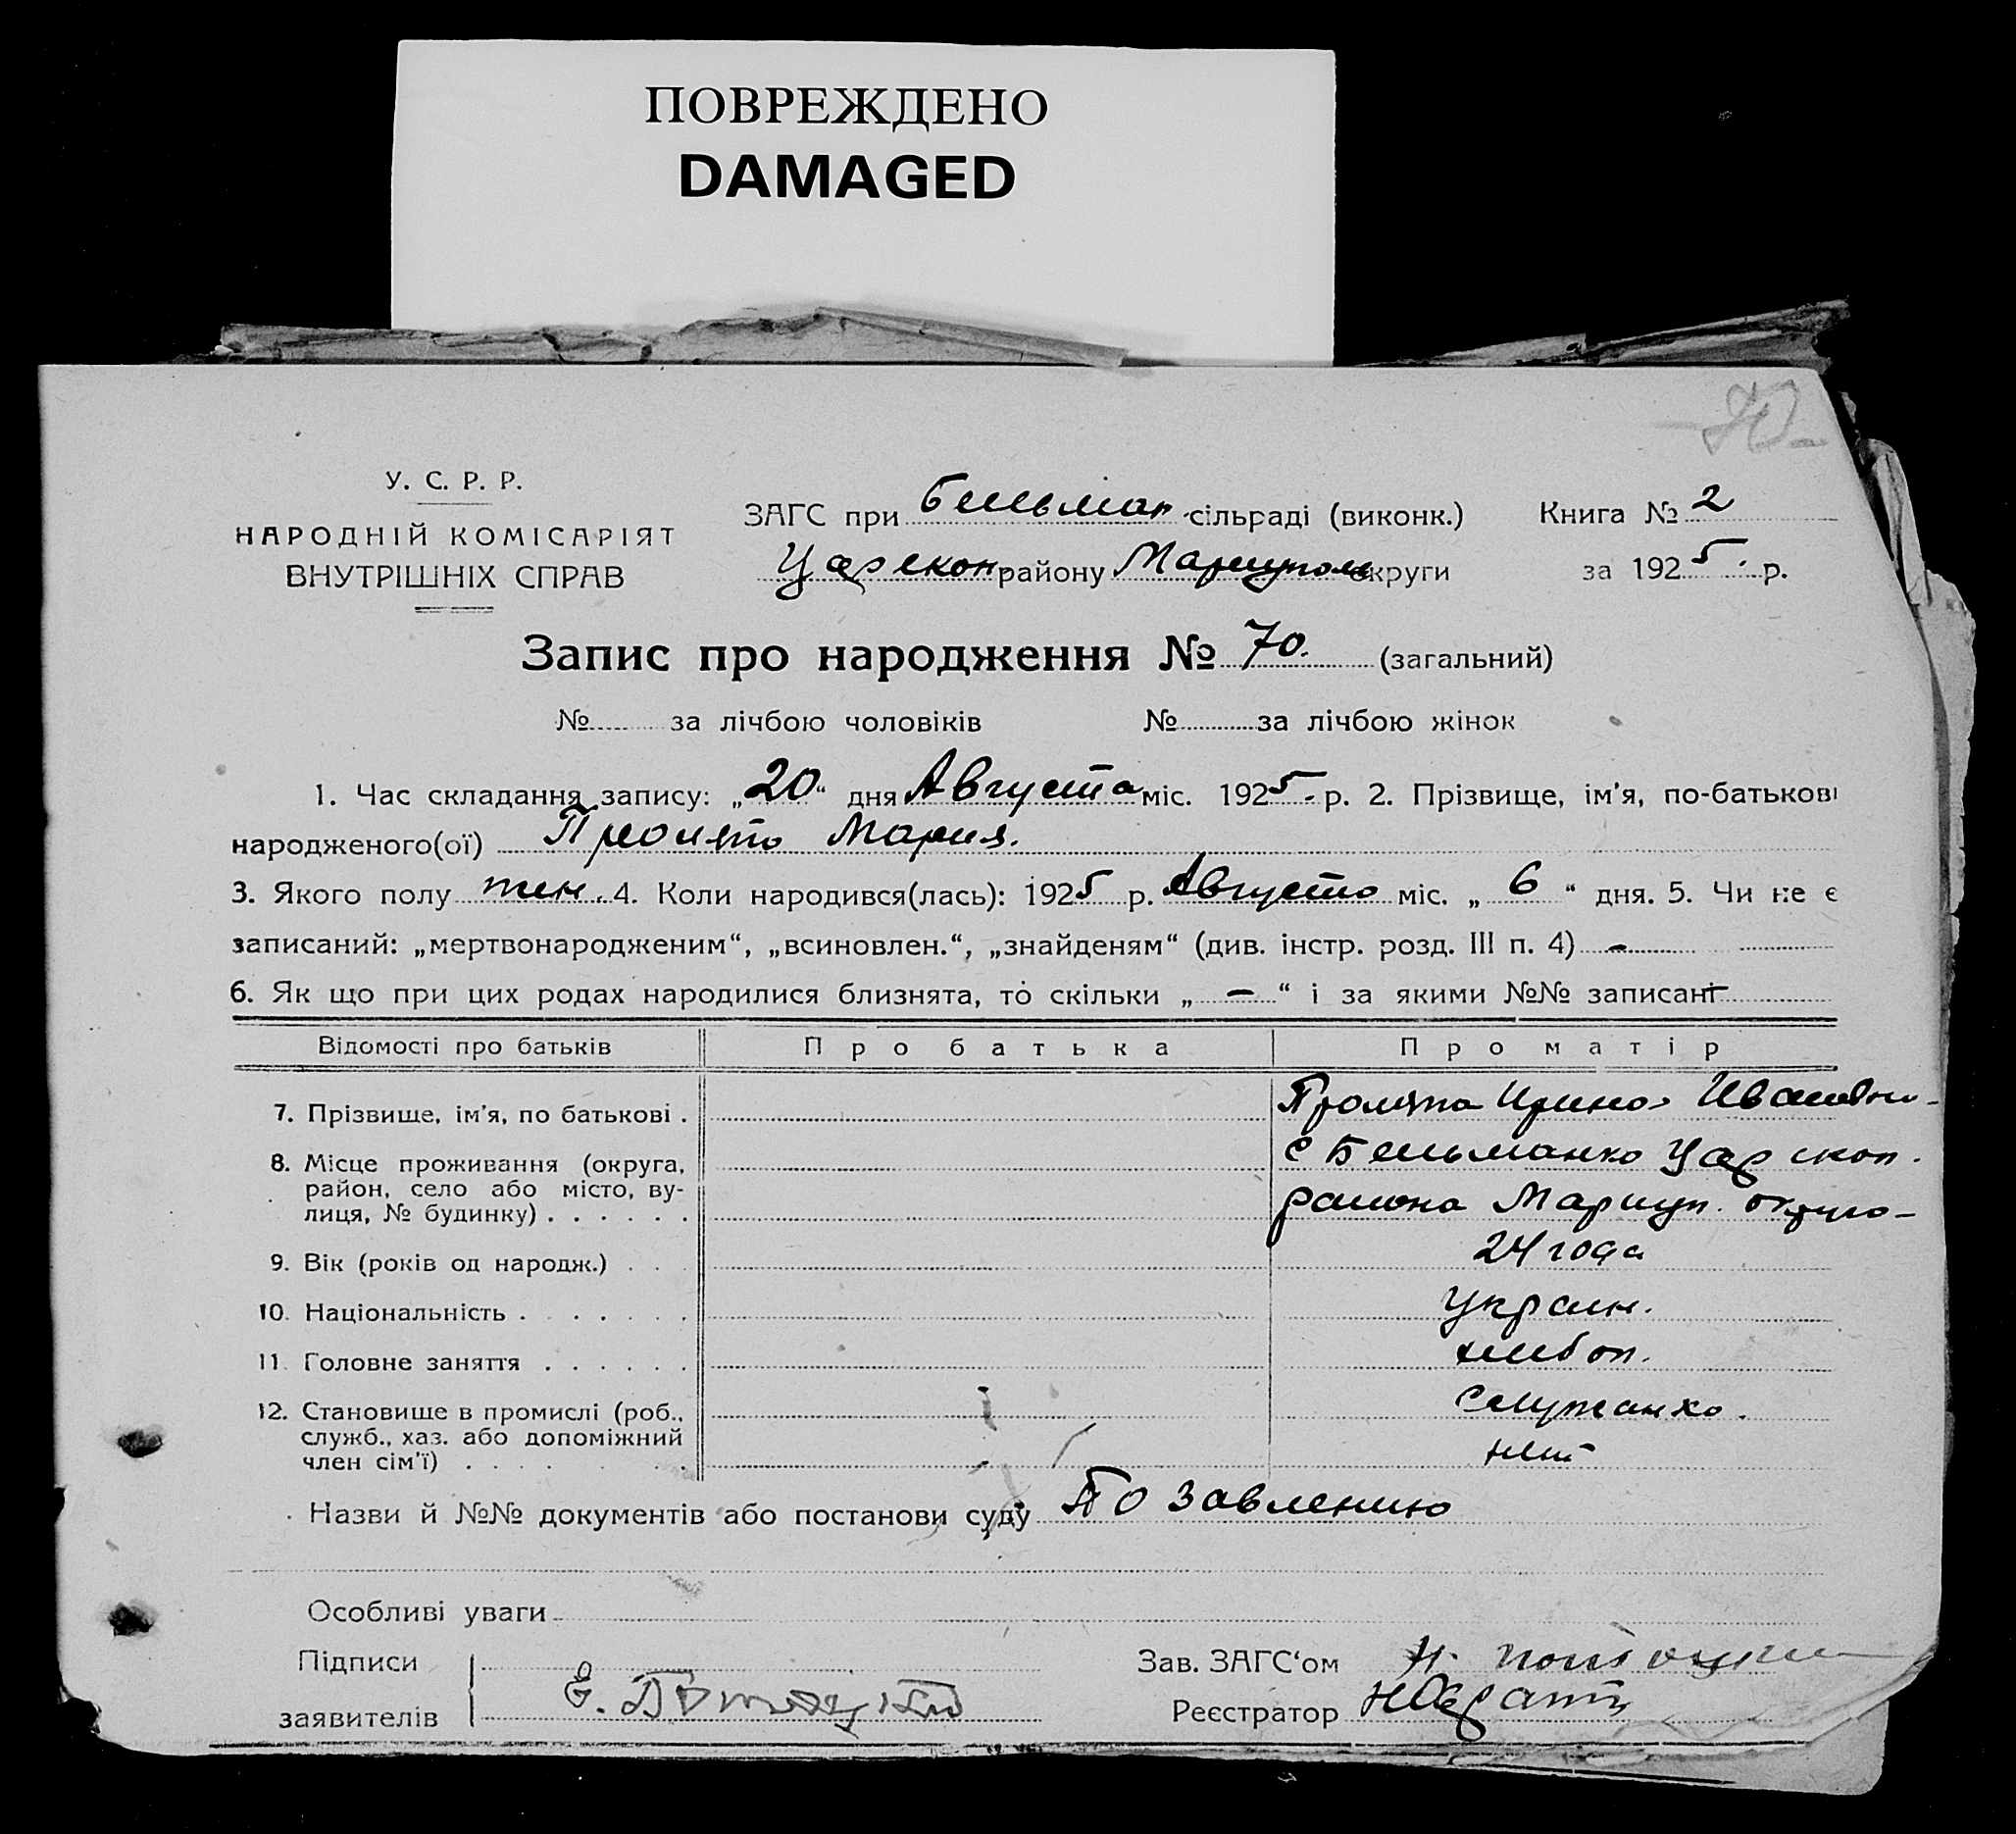 ПОВРЕЖДЕНО
DAMAGED
70
У. С. Р. Р.
НАРОДНІЙ КОМІСАРІЯТ
ВНУТРІШНІХ СПРАВ
ЗАГС при Бельман. сільраді (виконк.) Книга № 2
Царекон району Мариуполь округи за 1925. р.
Запис про народження № 70. (загальний)
№ за лічбою чоловіків № за лічбою жінок
1. Час складання запису: „20“ дня Августа міс. 1925 р. 2. Прізвище, ім'я, по-батькові
народженого(ої) Мария.
3. Якого полу жен. 4. Коли народився(лась): 1925 р. Августа міс. „6“ дня. 5. Чи не є
записаний: „мертвонародженим“, „всиновлен.“, „знайденям“ (див. інстр. розд. III п. 4) -
6. Як що при цих родах народилися близнята, то скільки „-“ і за якими №№ записані -
Відомості про батьків Про батька Про матір
7. Прізвище, ім'я, по батькові . Ирина Ивановн-
8. Місце проживання (округа, с Бельманка Царекон.
район, село або місто, ву-
лиця, № будинку) . . . . . . района Мариуп. округа-
9. Вік (років од народж.) . . . 24 года
10. Національність . . . . . . . украин.
11. Головне заняття . . . . . . хлебоп.
12. Становище в промислі (роб., Служанка.
служб., хаз. або допоміжний
член сім'ї) . . . . . . нет
Назви й №№ документів або постанови суду По заявлению
Особливі уваги
Підписи
заявителів Е.
Зав. ЗАГС'ом
Реєстратор